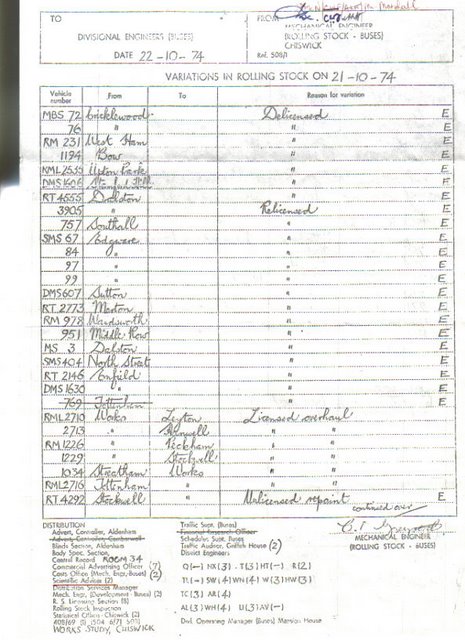 TO
FROM
DIVISIONAL ENGINEERS (BUSES)
MECHANICAL ENGINEER
(ROLLING STOCK - BUSES)
CHISWICK
DATE 22-10-74
Ref. 508/1
VARIATIONS IN ROLLING STOCK ON 21-10-74
Vehicle number From To Reason for variation
MBS 72 Cricklewood Delicensed E
76 " " E
RM 231 West Ham " E
1194 Bow " E
RML 2535 Upton Park " E
DMS 1606 " E
RT 4655 Dalston " E
3905 " Relicensed E
757 Southall " E
SMS 67 Edgware " E
84 " " E
97 " " E
99 " " E
DMS 607 Sutton " E
RT 2773 Merton " E
RM 978 Wandsworth " E
951 Middle Row " E
MS 3 Dalston " E
SMS 404 North Street " E
RT 2146 Enfield " E
DMS 1630 " " E
769 Tottenham " E
RML 2710 Works Leyton Licensed overhaul
2713 " Stamwell " "
RM 1226 " Peckham " "
1229 " Stockwell " "
1034 Streatham Works " "
RML 2716 Tottenham " " "
RT 4292 Stockwell " Unlicensed repaint E
continued over
MECHANICAL ENGINEER
(ROLLING STOCK - BUSES)
DISTRIBUTION
Advert. Controller, Aldenham
Advert. Controller, Camberwell
Blinds Section, Aldenham
Body Spec. Section,
Central Record ROOM 34
Commercial Advertising Officer (7)
Costs Office (Mech. Engr. Buses) (2)
Scientific Adviser (2)
Distribution Services Manager
Mech. Engr. (Development - Buses) (2)
R. S. Licensing Section (8)
Rolling Stock Inspection
Statistical Officer - Chiswick (2)
WORKS STUDY, CHISWICK
Traffic Supt. (Buses)
Financial Research Officer
Schedules Supt. Buses
Traffic Auditor, Griffith House (2)
District Engineers
Q (-) NX (3) T (3) HT (-) R (2)
TL (-) SW (4) WN (4) W (3) HW (3)
TC (3) AR (4)
AL (3) WH (4) U (3) AV (-)
Divl. Operating Manager (Buses) Mansion House